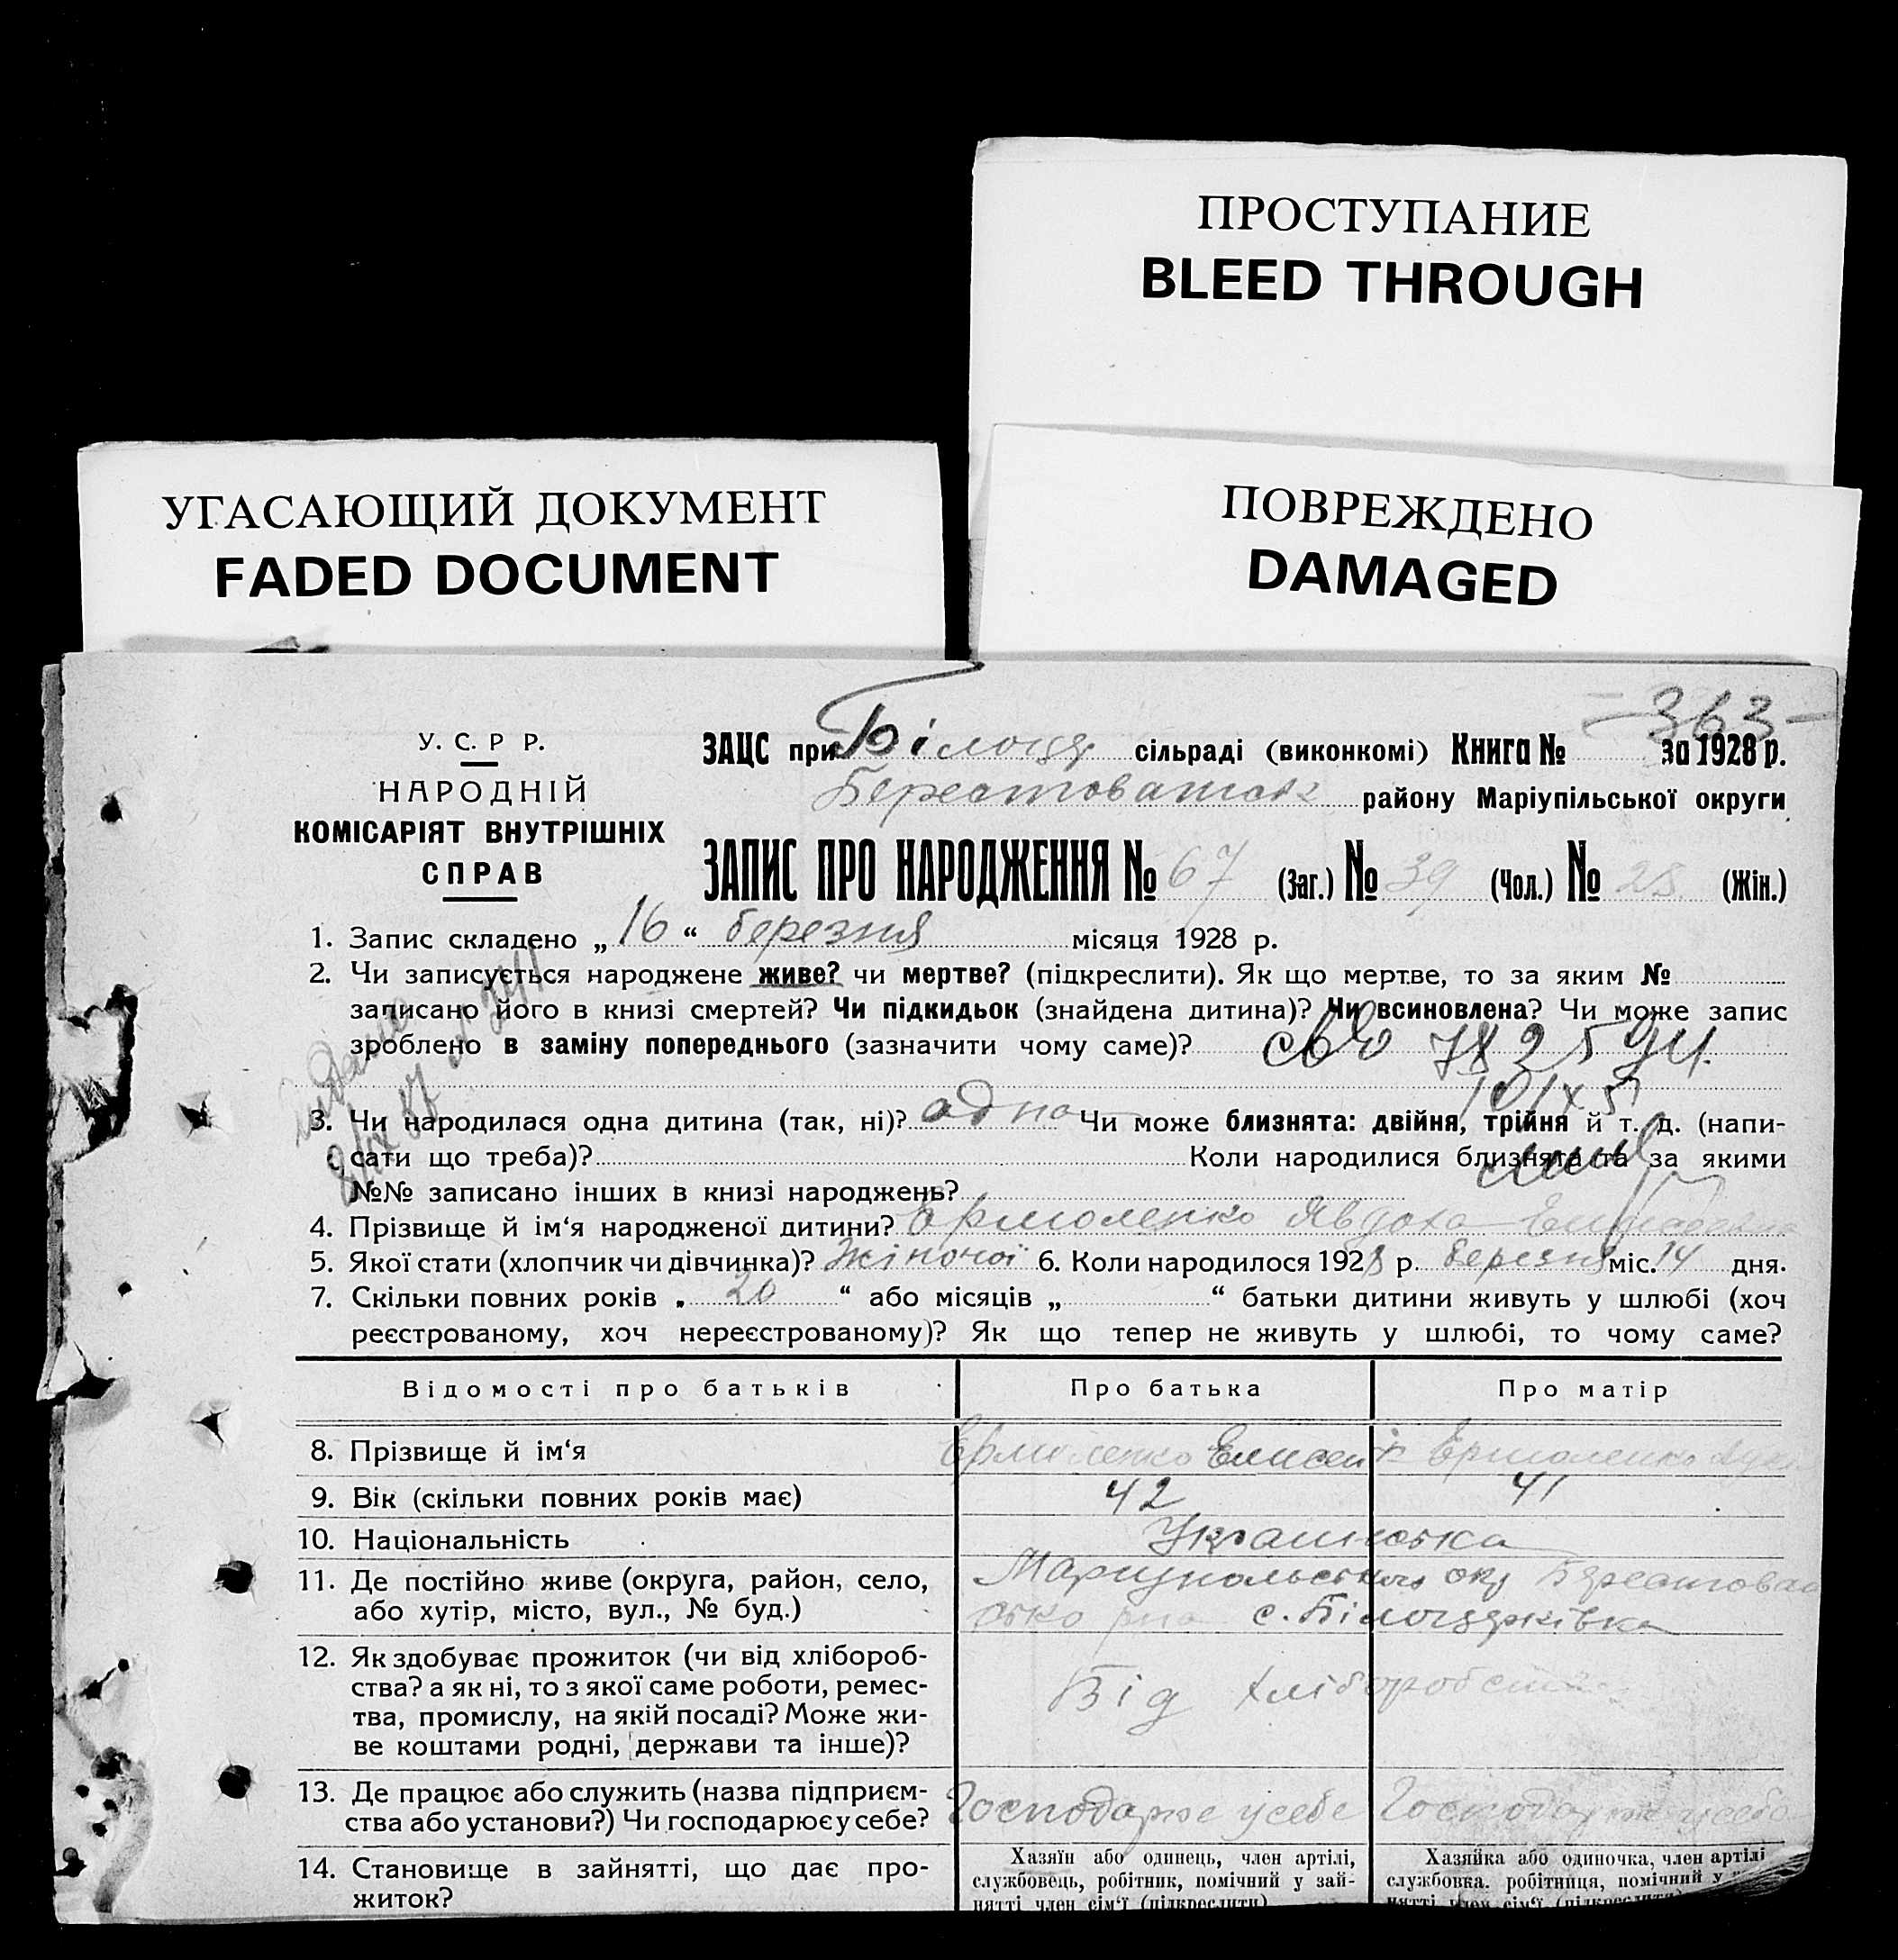 ПРОСТУПАНИЕ
BLEED THROUGH
УГАСАЮЩИЙ ДОКУМЕНТ
FADED DOCUMENT
ПОВРЕЖДЕНО
DAMAGED
-363-
У. С. Р Р.
НАРОДНІЙ
КОМІСАРІЯТ ВНУТРІШНІХ
СПРАВ
ЗАЦС при Білоцер сільраді (виконкомі) Книга № за 1928 р.
району Маріупільської округи
ЗАПИС ПРО НАРОДЖЕННЯ № 67 (Заг.) № 39 (Чол.) № 28 (Жін.)
1. Запис складено „ 16 “ березня місяця 1928 р.
2. Чи записується народжене живе? чи мертве? (підкреслити). Як що мертве, то за яким №
записано його в книзі смертей? Чи підкидьок (знайдена дитина)? Чи всиновлена? Чи може запис
зроблено в заміну попереднього (зазначити чому саме)?
3. Чи народилася одна дитина (так, ні)? одна Чи може близнята: двійня, трійня й т. д. (напи-
сати що треба)? Коли народилися близнята та за якими
№№ записано інших в книзі народжень?
4. Прізвище й ім‘я народженої дитини? Єрмоленко Явдоха
5. Якої стати (хлопчик чи дівчинка)? Жіночої 6. Коли народилося 1928 р. березня міс. 14 дня.
7. Скільки повних років „ 20 “ або місяців „ “ батьки дитини живуть у шлюбі (хоч
реєстрованому, хоч нереєстрованому)? Як що тепер не живуть у шлюбі, то чому саме?
Відомості про батьків Про батька Про матір
8. Прізвище й ім‘я Єрмоленко Елисей Єрмоленко
9. Вік (скільки повних років має) 42 41
10. Національність Українська
11. Де постійно живе (округа, район, село,
або хутір, місто, вул., № буд.)
Маріупольського окр
с. Білоцерківка
12. Як здобуває прожиток (чи від хлібороб-
ства? а як ні, то з якої саме роботи, ремес-
тва, промислу, на якій посаді? Може жи-
ве коштами родні, держави та інше)?
Від хліборобства
13. Де працює або служить (назва підприєм-
ства або установи?) Чи господарює у себе?
Господарює у себе Господарює у себе
14. Становище в зайнятті, що дає про-
житок?
Хазяїн або одинець, член артілі,
службовець, робітник, помічний у зай-
нятті член сім‘ї (підкреслити)
Хазяйка або одиночка, член артілі
службовка. робітниця, помічний у
нятті член сім‘ї